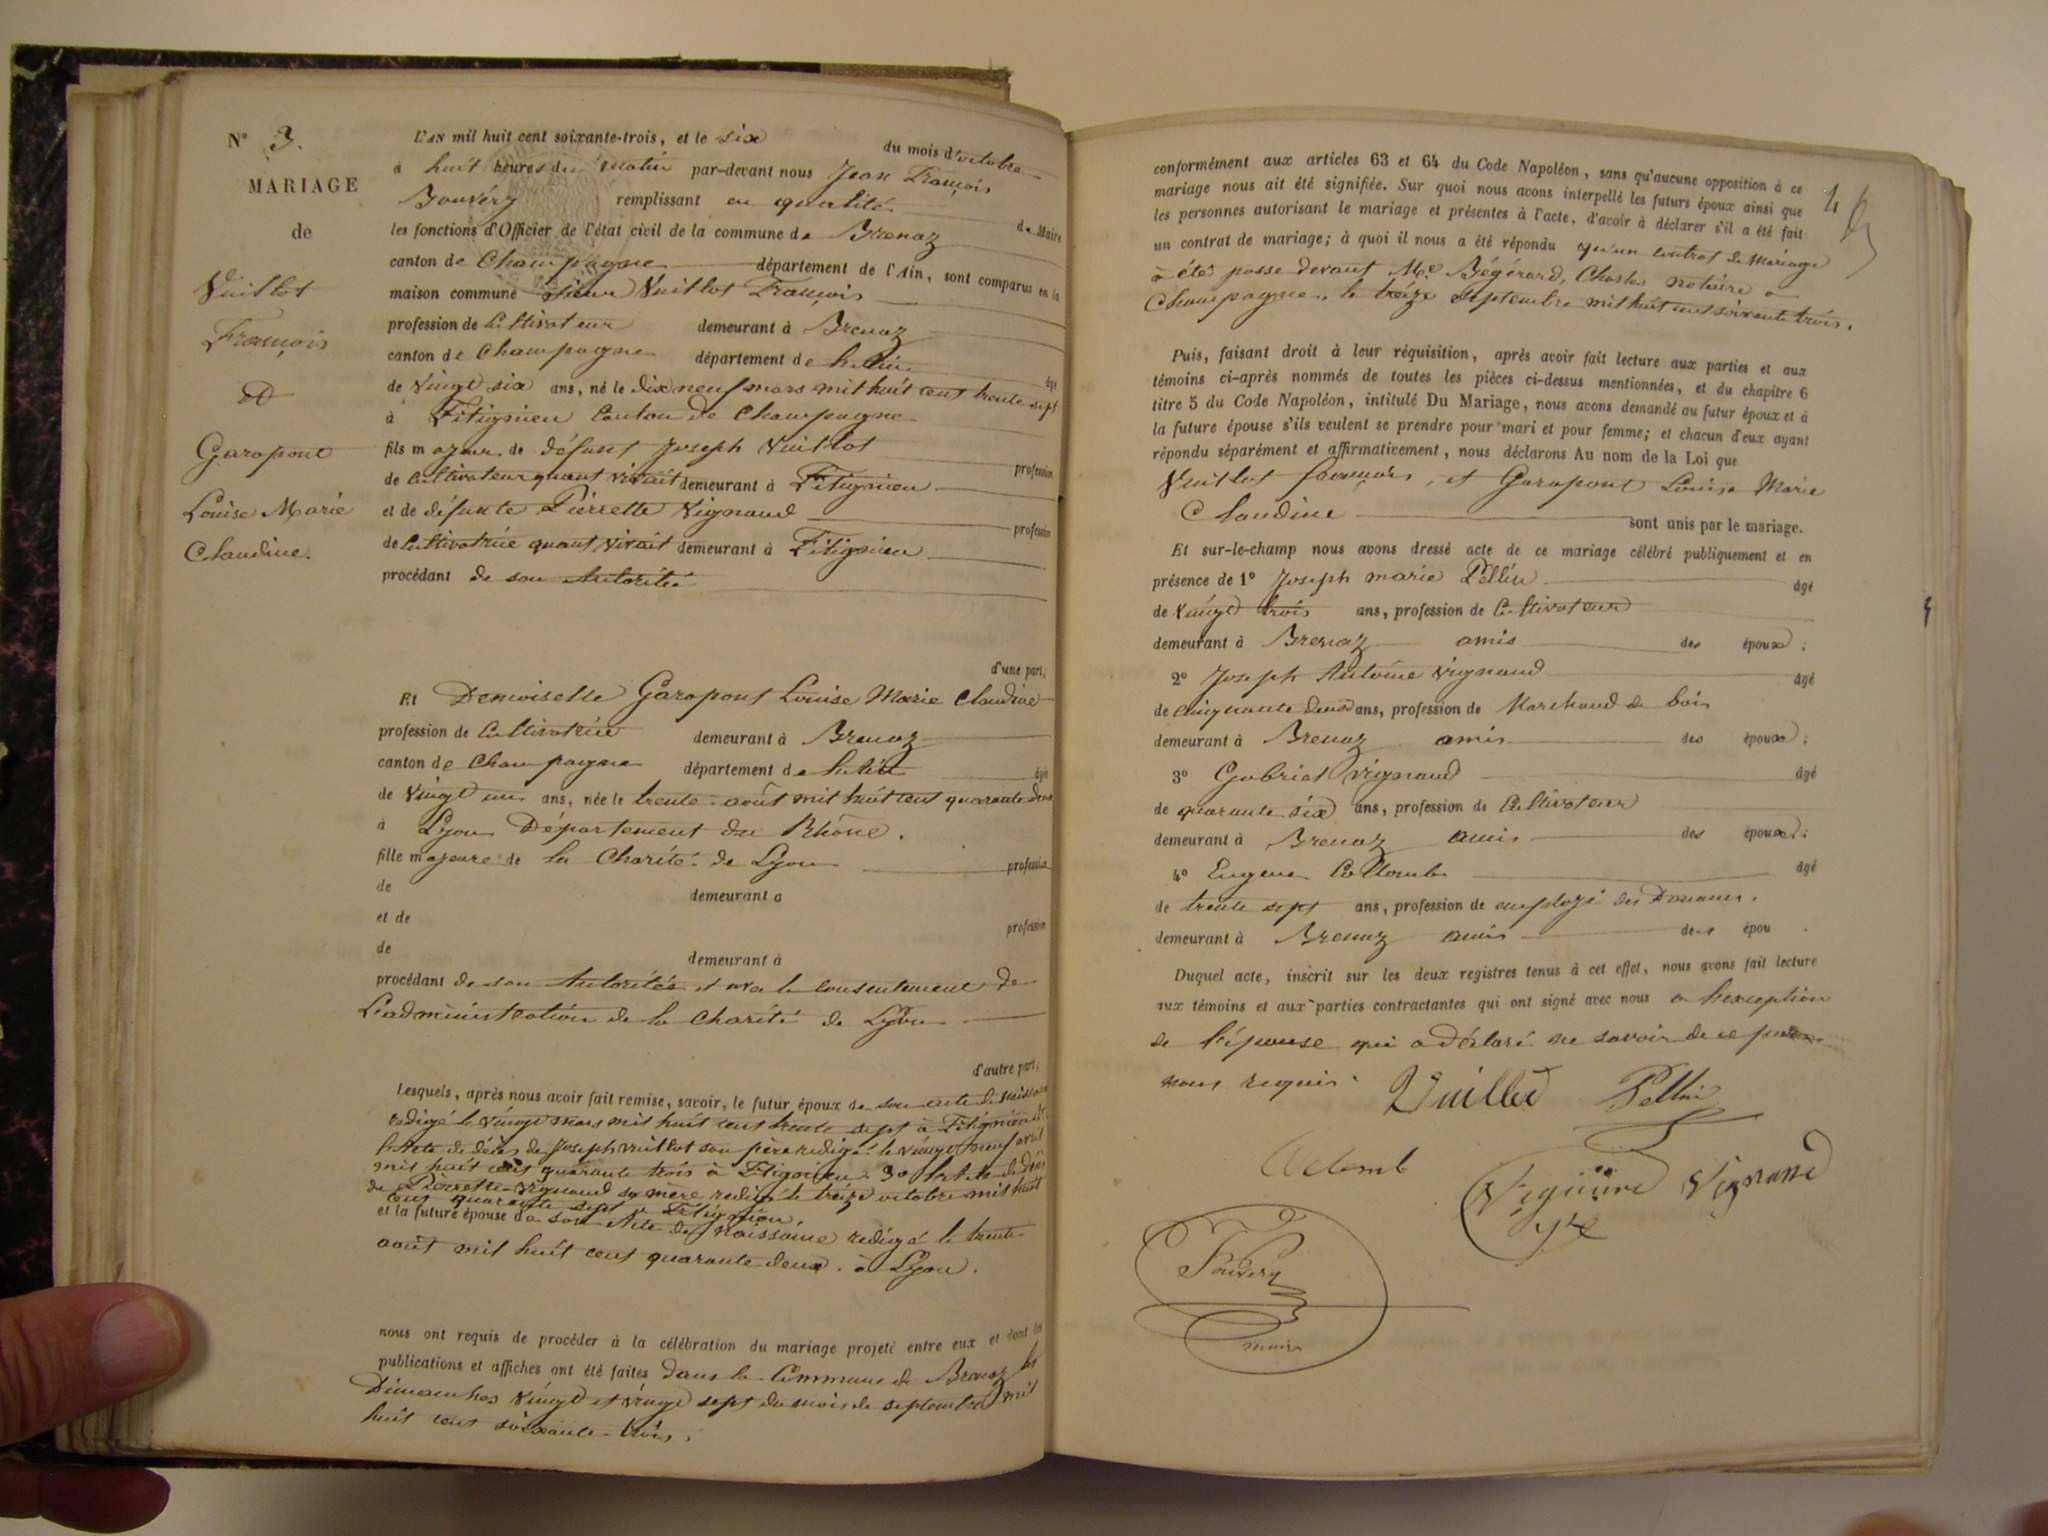 N° 3.
MARIAGE
de
Vuillot
François
Et
Garapont
Louise Marie
Claudine.
L'AN mil huit cent soixante-trois, et le six du mois d'octobre
à huit heures du matin par-devant nous Jean François
Bouvéry remplissant en qualité de Maire
les fonctions d'Officier de l'état civil de la commune de Brenaz
canton de Champagne département de l'Ain, sont comparus en la
maison commune sieur Vuillot François
profession de Cultivateur demeurant à Brenaz
canton de Champagne département de l'Ain âgé
de vingt six ans, né le dix neuf mars mil huit cent trente sept
à Fitignieu Canton de Champagne
fils majeur de défunt Joseph Vuillot profession
de Cultivateur quant vivait demeurant à Fitignieu
et de défunte Pierrette Vignaud profession
de Cultivatrice quant vivait demeurant à Fitignieu
procédant de son Autorité
d'une part;
Et Demoiselle Garapont Louise Marie Claudine
profession de Cultivatrice demeurant à Brenaz
canton de Champagne département de l'Ain âgé
de vingt un ans, née le trente août mil huit cent quarante deux
à Lyon Département du Rhône.
fille majeure de la Charité de Lyon profession
de demeurant à
et de profession
de demeurant à
procédant de son Autorité et avec le consentement de
L'administration de la Charité de Lyon
d'autre part;
Lesquels, après nous avoir fait remise, savoir, le futur époux de son acte de naissance
redigé le vingt mars mil huit cent trente sept à Fitignieu
l'Acte de décès de Joseph Vuillot son père redigé le vingt neuf avril
mil huit cent quarante trois à Fitignieu 3° l'Acte de décès
de Pierrette Vignaud sa mère redigé le treize octobre mil huit
cent quarante sept à Fitignieu
et la future épouse de son Acte de Naissance redigé le trente
août mil huit cent quarante deux. à Lyon.
nous ont requis de procéder à la célébration du mariage projeté entre eux et dont les
publications et affiches ont été faites dans la Commune de Brenaz les
Dimanches vingt et vingt sept du mois de septembre mil
huit cent soixante-trois.
conformément aux articles 63 et 64 du Code Napoléon, sans qu'aucune opposition à ce
mariage nous ait été signifiée. Sur quoi nous avons interpellé les futurs époux ainsi que
les personnes autorisant le mariage et présentes à l'acte, d'avoir à déclarer s'il a été fait
un contrat de mariage; à quoi il nous a été répondu qu'un contrat de Mariage
a été passé devant Me Bégérard, Charles notaire a
Champagne, le treize septembre mil huit cent soixante trois.
Puis, faisant droit à leur réquisition, après avoir fait lecture aux parties et aux
témoins ci-après nommés de toutes les pièces ci-dessus mentionnées, et du chapitre 6
titre 5 du Code Napoléon, intitulé Du Mariage, nous avons demandé au futur époux et à
la future épouse s'ils veulent se prendre pour mari et pour femme; et chacun d'eux ayant
répondu séparément et affirmativement, nous déclarons Au nom de la Loi que
Vuillot François, et Garapont Louise Marie
Claudine sont unis par le mariage.
Et sur-le-champ nous avons dressé acte de ce mariage célébré publiquement et en
présence de 1° Joseph marie Pellin âgé
de vingt trois ans, profession de Cultivateur
demeurant à Brenaz amis des époux;
2° Joseph Antoine Vignaud âgé
de cinquante deux ans, profession de Marchand de bois
demeurant à Brenaz amis des époux;
3° Gabriel Vignaud âgé
de quarante six ans, profession de Cultivateur
demeurant à Brenaz amis des époux;
4° Eugene Collomb âgé
de trente sept ans, profession de employé des Douanes,
demeurant à Brenaz amis des épou .
Duquel acte, inscrit sur les deux registres tenus à cet effet, nous avons fait lecture
aux témoins et aux parties contractantes qui ont signé avec nous a l'exception
de l'épouse qui a déclaré ne savoir de ce par
nous requis.
Vuillot Pellin
Colomb Vignaud
Bouvery
maire